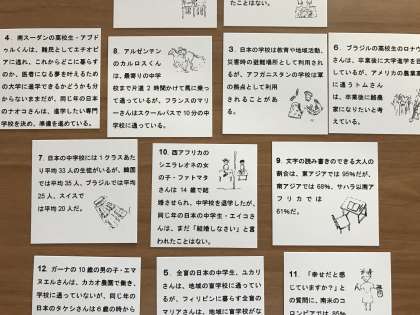 たことはない。
4. 南スーダンの高校生・アブド
ゥルくんは、難民としてエチオピ
アに逃れ、これからどこに暮らす
のか、医者になる夢を叶えるため
の大学に進学できるかどうかも分
からないままだが、同じ年の日本
のナオコさんは、進学したい専門
学校を決め、準備を進めている。
8. アルゼンチン
のカルロスくん
は、最寄りの中学
校まで片道2時間かけて馬に乗っ
て通っているが、フランスのマリ
ーさんはスクールバスで10分の中
学校に通っている。
3. 日本の学校は教育や地域活動、
災害時の避難場所として利用され
るが、アフガニスタンの学校は軍
の拠点として利用
されることがあ
る。
6. ブラジルの高校生のロナウ
さんは、卒業後に大学進学を目
しているが、アメリカの農業高
に通うトムさん
は、卒業後に酪農
家になりたいと考
えている。
7. 日本の中学校には1クラスあた
り平均33人の生徒がいるが、韓国
では平均35人、ブラジルでは平均
25人、スイスで
は平均20人だ。
10. 西アフリカの
シエラレオネの女
の子・ファトマタ
さんは14歳で結
婚させられ、中学校を退学したが、
同じ年の日本の中学生・エイコさ
んは、まだ「結婚しなさい」と言
われたことはない。
9. 文字の読み書きのできる大人の
割合は、東アジアでは95%だが、
南アジアでは68%、サハラ以南ア
フリカでは
61%だ。
12 ガーナの10歳の男の子・エマ
ヌエルさんは、カカオ農園で働き、
学校に通っていないが、同じ年の
日本のタケシさんは6歳の時から
5. 全盲の日本の中学生、ユカリ
さんは、地域の盲学校に通ってい
るが、フィリピンに暮らす全盲の
マリアさんは、地域に盲学校がな
11. 「幸せだと感
じていますか?」と
の質問に、南米のコ
ロンビアでは86%